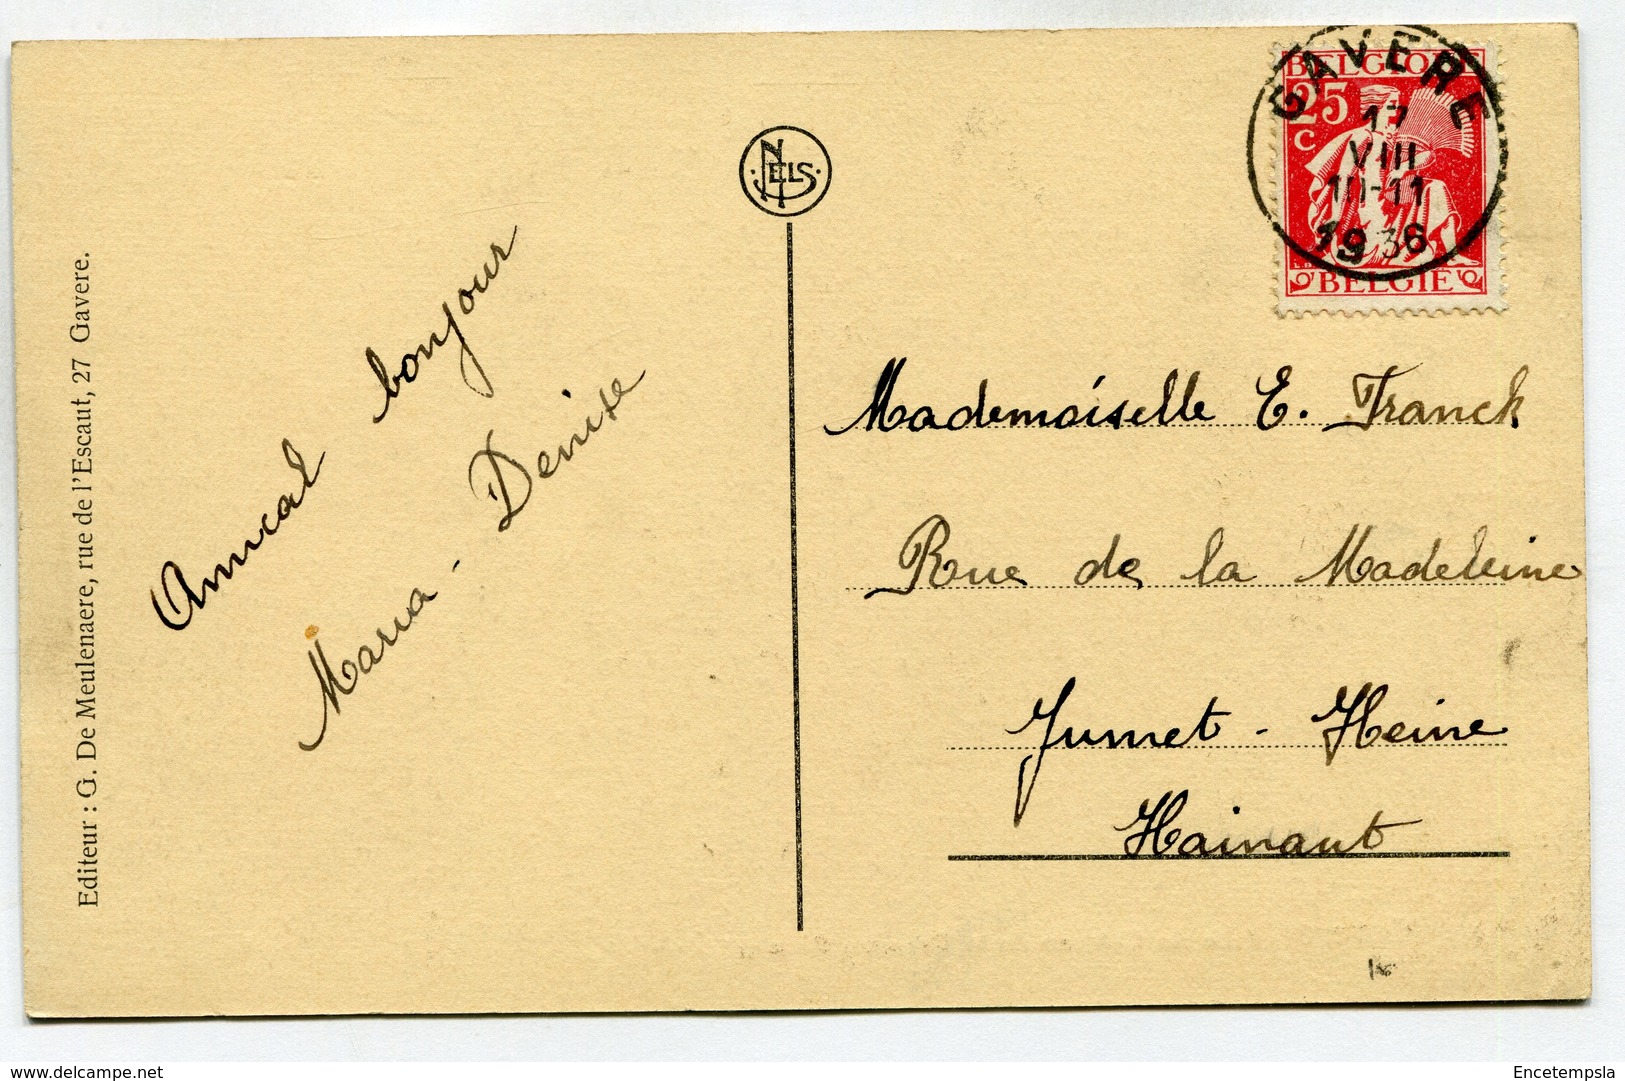 Editeur : G. De Meulenaere, rue de l'Escaut, 27 Gavere.
Amical bonjour
Maria - Denise
NELS
GAVERE
17
VIII
1936
BELGIQUE
25
C
BELGIË
Mademoiselle E. Franck
Rue de la Madeleine
Jumet - Heine
Hainaut
delcampe.net
Encetempsla